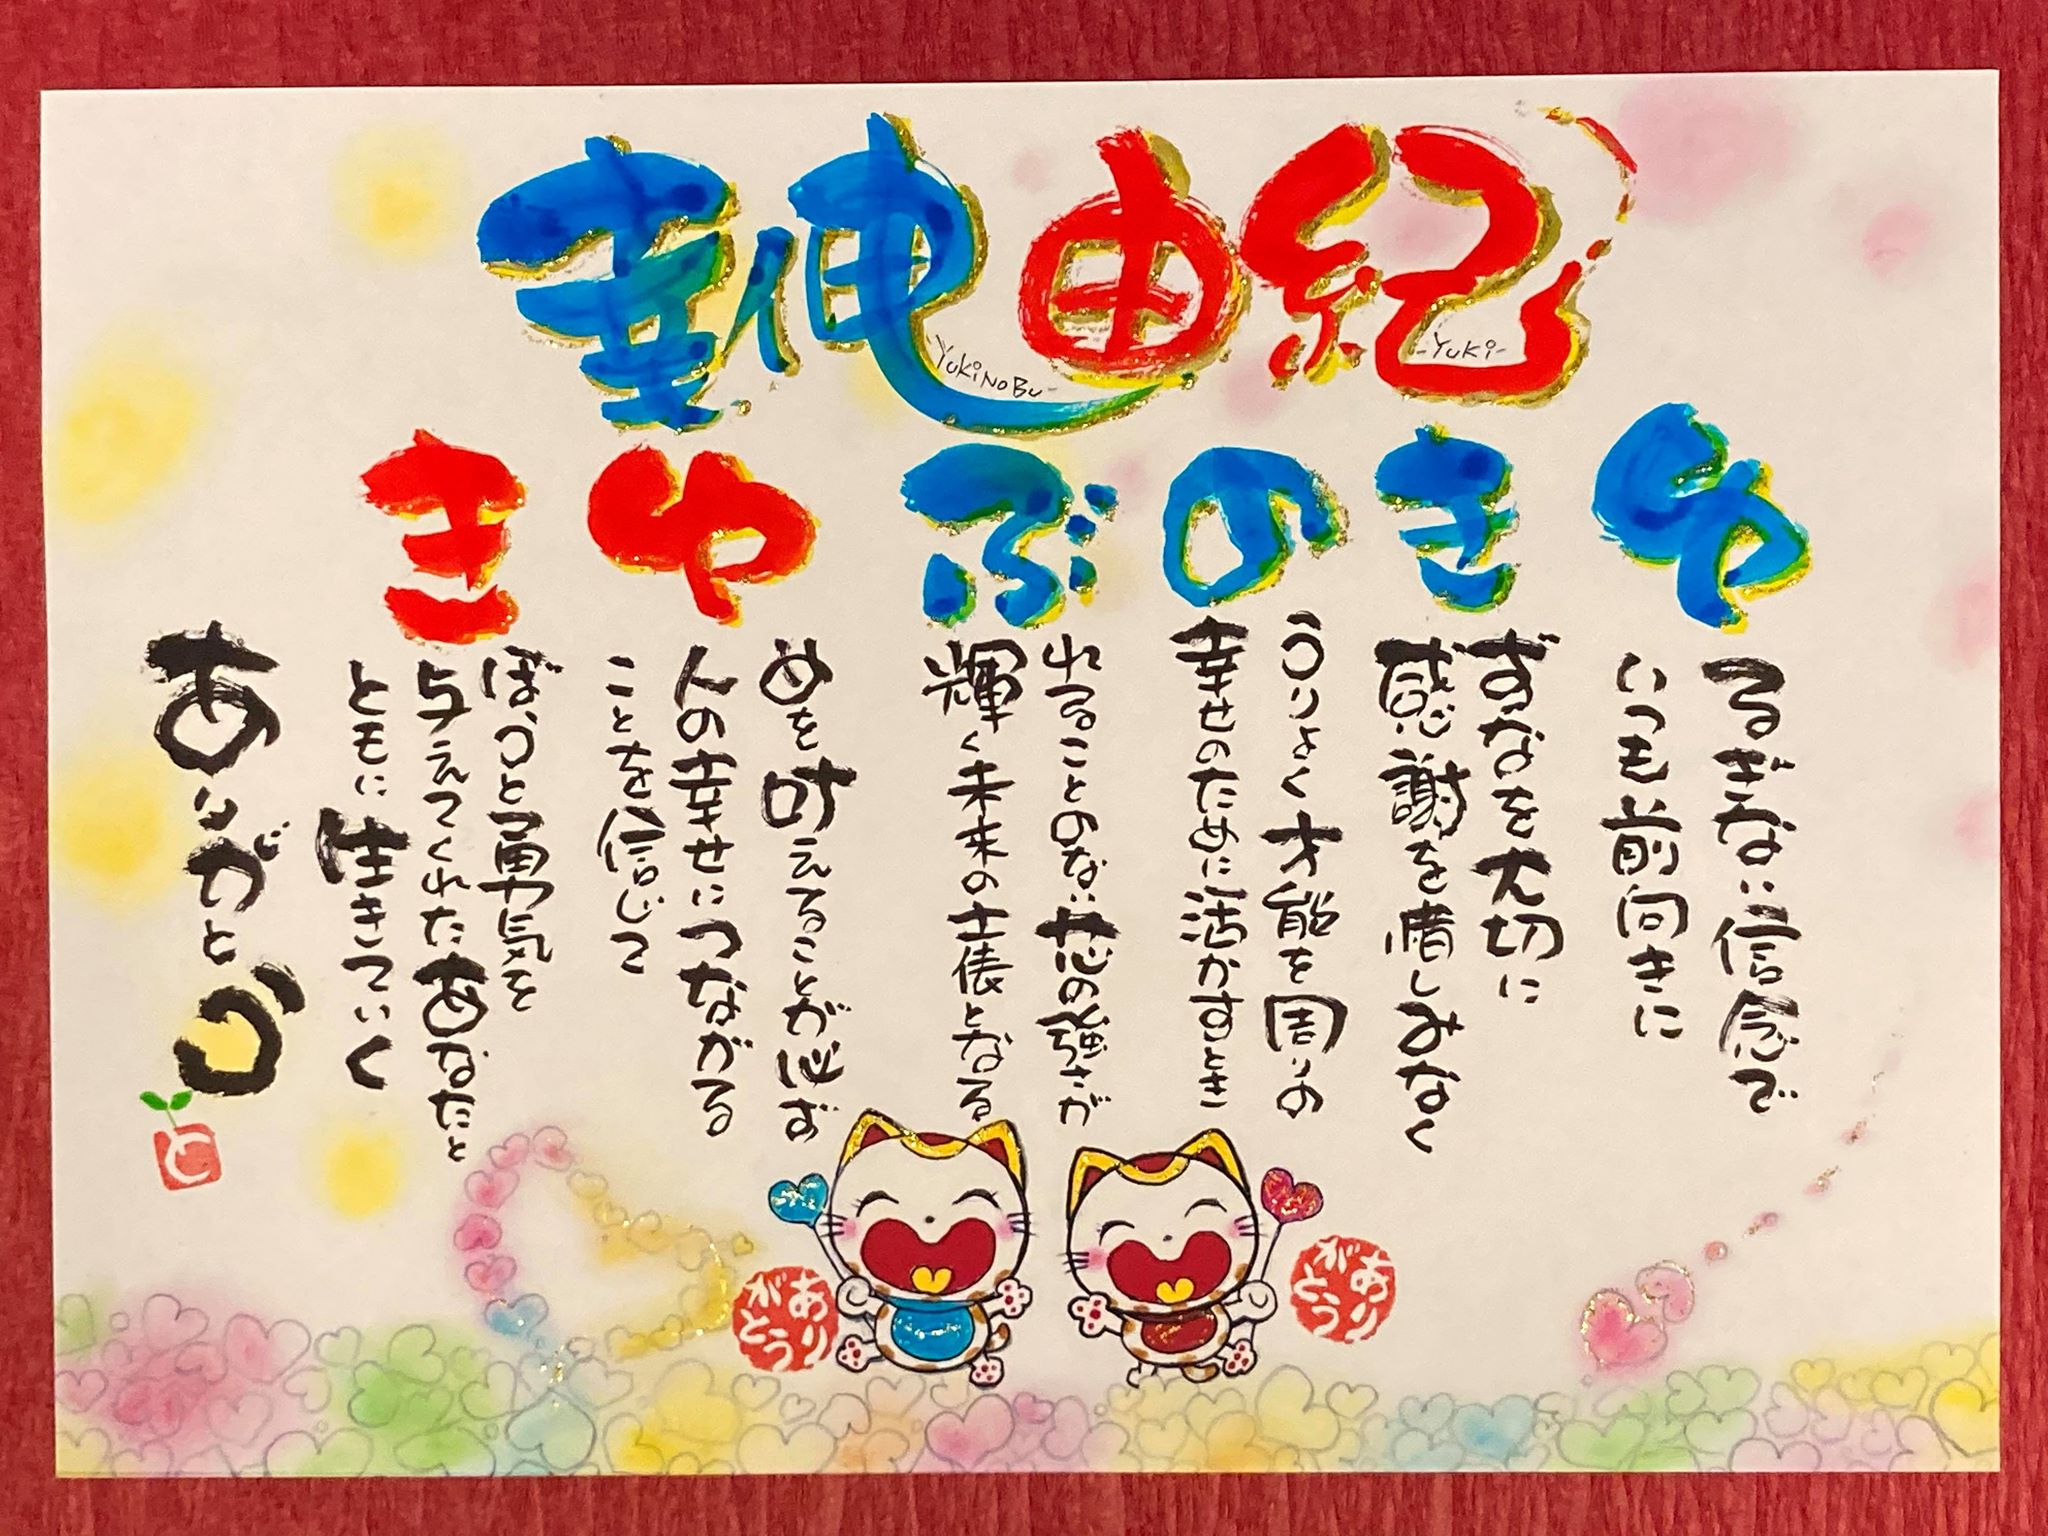 幸伸
YukiNoBu
由紀
-Yuki-
ゆるぎない信念で
いつも前向きに
きずなを大切に
感謝を惜しみなく
のうりょく才能を周りの
幸せのために活かすとき
ぶれることのない芯の強さが
輝く未来の土俵となる
ゆめを叶えることが必ず
人の幸せにつながる
ことを信じて
きぼうと勇気を
与えてくれたあなたと
ともに生きていく
ありがとう
と
ありがとう
ありがとう